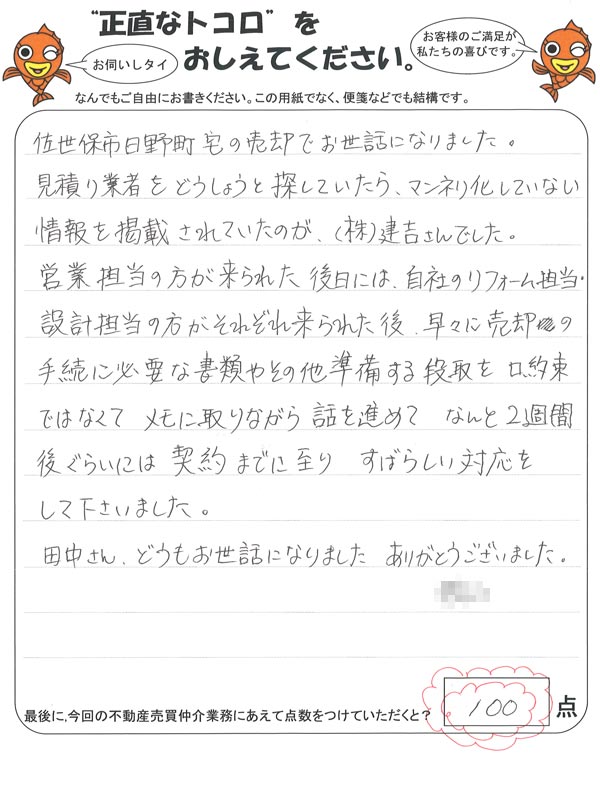 "正直なトコロ"を
おしえてください。
お伺いしタイ
お客様のご満足が
私たちの喜びです。
なんでもご自由にお書きください。この用紙でなく、便箋などでも結構です。
佐世保市日野町宅の売却でお世話になりました。
見積り業者をどうしょうと探していたら、マンネリ化していない
情報を掲載されていたのが、(株)建吉さんでした。
営業担当の方が来られた後日には、自社のリフォーム担当・
設計担当の方がそれぞれ来られた後、早々に売却の
手続に必要な書類やその他準備する段取を口約束
ではなくて メモに取りながら話を進めて なんと2週間
後ぐらいには契約までに至り すばらしい対応を
して下さいました。
田中さん、どうもお世話になりました ありがとうございました。
最後に、今回の不動産売買仲介業務にあえて点数をつけていただくと?
100 点